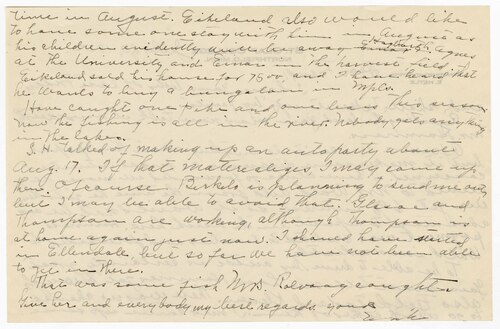 time in August. Eikeland also would like
to have some one stay with him in August as
his children evidently will be away Esther & Agnes
at the University and Einar in the harvest field.
Eikeland sold his house for 7500 and I have heard that
he wants to buy a bungalow in Mpls.
Have caught one pike and one bass this season
now the fishing is all in the river. Nobody gets anything
in the lakes.
I. H. talked of making up an auto party about
Aug. 17. If that materializes, I may come up
then. Of course Birkelo is planning to send me out
but I may be able to avoid that. Glesne and
Thompson are working, although Thompson is
at home again just now. I should have started
in Ellendale, but so far we have not been able
to get in there.
That was some fish Mrs. Rolvaag caught.
Give her and everybody my best regards. Yours